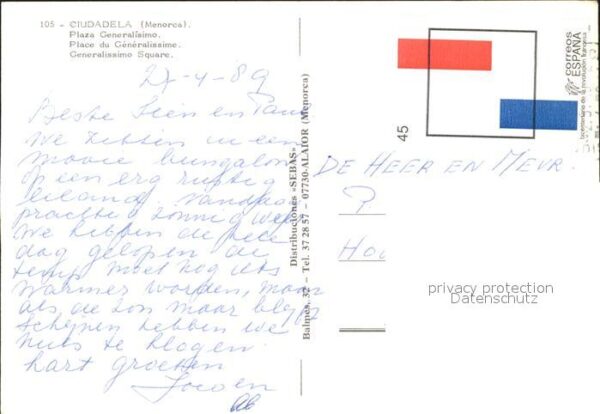 105 - CIUDADELA (Menorca).
Plaza Generalísimo.
Place du Généralissime.
Generalissimo Square.
-4-89
Beste Sien en
We zitten in een
mooie bungalow
op een erg rustig
eiland. Vandaag
prachtig zonnig weer
We hebben de hele
dag gelopen de
temp moet nog iets
warmer worden, maar
als de zon maar blijft
schijnen hebben we
niets te klagen
hart groeten
Distribuciones «SEBAS»
Balmes, 32 - Tel. 37 28 57 - 07730-ALAIOR (Menorca)
45
correos
ESPAÑA
bicentenario de la revolución francesa
DE HEER EN MEVR.
P
HOO
privacy protection
Datenschutz